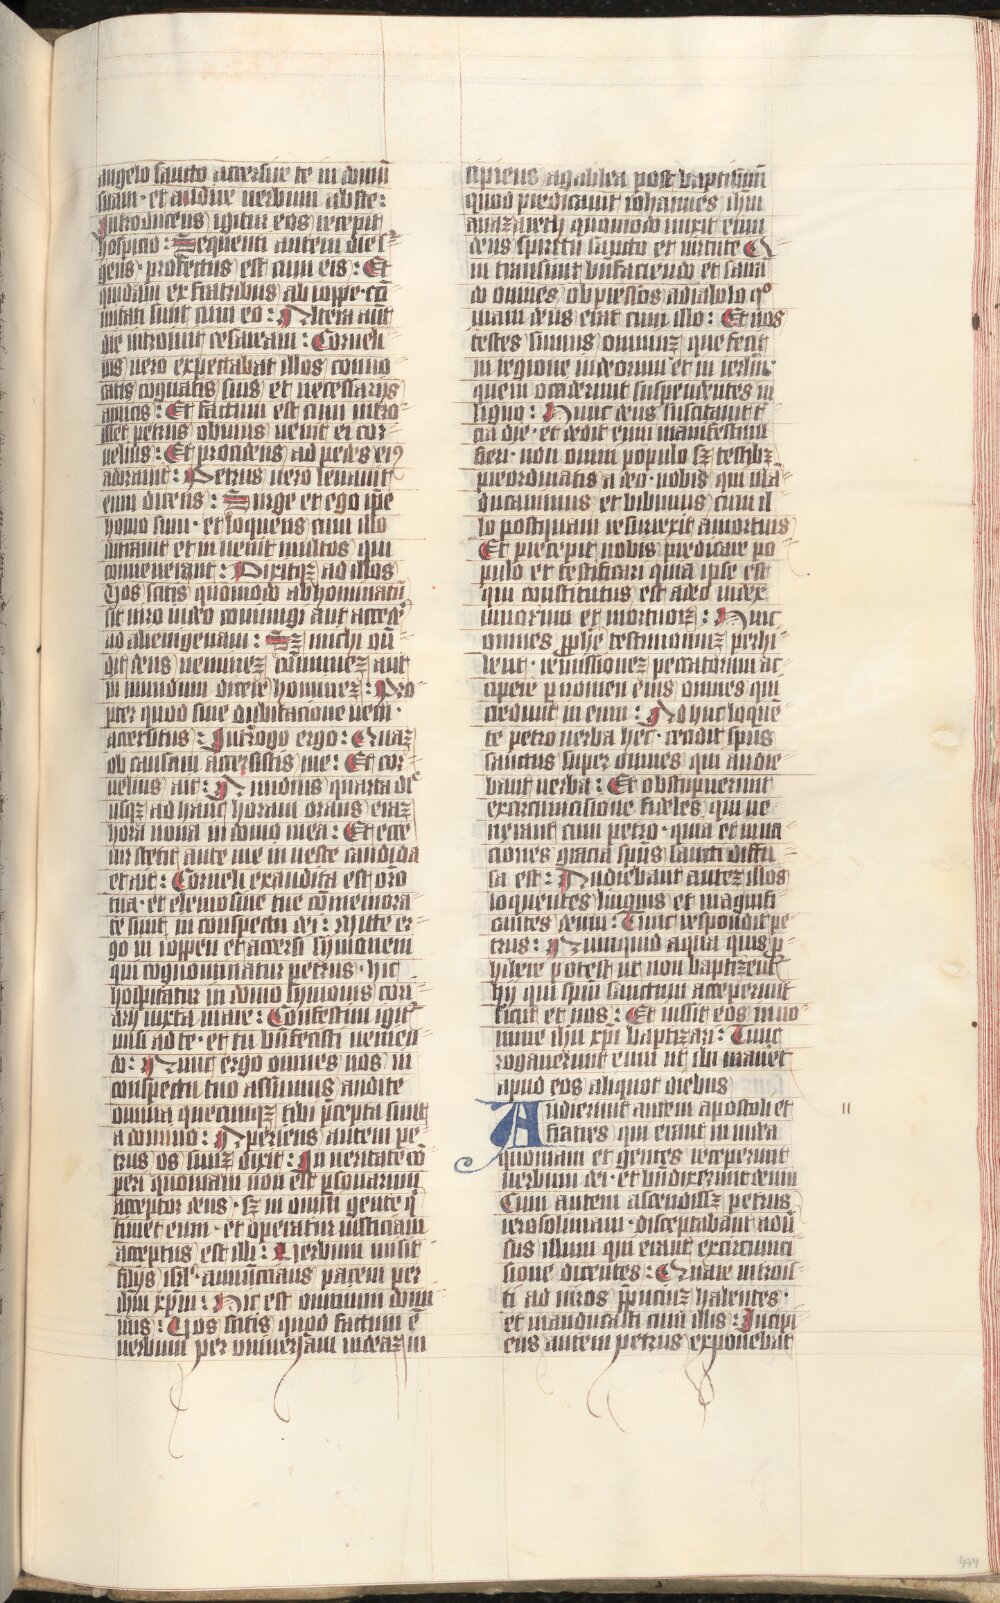 angelo sancto accersire te in domū
suam · et audire uerbum abs te :
Introducens igitur eos recepit
hospicio : Sequenti autem die sͬ
gens · profectus est cum eis : Et
quidam ex fratribus ab ioppe · cō
mitati sunt cum eo : Altera aūt
die introiuit cesaream : Corneli
us uero expectabat illos conuo
catis cognatis suis et necessarijs
amicis : Et factum est cum intro
isset petrus obuius uenit ei cor
nelius : Et procidens ad pedes eiꝰ
adorauit : Petrus uero leuauit
eum dicens : Surge et ego ip̄e
homo sum · et loquens cum illo
intrauit et inuenit multos qui
conuenerant : Dixitqꝫ ad illos
Uos scitis quomodo abhominatū
sit uiro iudeo coniungi aut acced̄
ad alienigenam : Sꝫ michi oñ
dit deus nemineꝫ cōmuneꝫ aut
in mundum dicere homineꝫ : Pro
pter quod sine dubitacione ueni ·
accersitus : Introgo ergo : Quaꝫ
ob causam accersistis me : Et cor
nelius ait : A nudius quarta die
usqꝫ ad hanc horam orans eraꝫ
hora nona in domo mea : Et ecce
uir stetit ante me in ueste candida
et ait : Corneli exaudita est orō
tua · et elemosine tue cōmemora
te sunt in conspectu dei : Mitte er
go in ioppen et accersi symonem
qui cognominatur petrus · hic
hospitatur in domo symonis cori
arij iuxta mare : Confestim igit᷑
misi ad te · et tu bn̄fecisti uenien
do : Nunc ergo omnes nos in
conspectu tuo assumus audire
omnia quecumqꝫ tibi p̄cepta sunt
a domino : Aperiens autem pe
trus os suuꝫ dixit : In ueritate cō
peri quoniam non est p̱sonarum
acceptor deus · sꝫ in omni gente q̄
timet eum · et operatur iusticiam
acceptus est illi : Uerbum misit
filijs isrl̄ · annuncians pacem per
ihm xp̄m : Hic est omnium domi
nus : Uos scitis quod factum ē
uerbum per uniuersam iudeaꝫ in
cipiens agalilea post baptismū
quod predicauit iohannes ihm
anazareth quomodo unxit eum
deus spiritu sancto et uirtute Q
ui transiuit bn̄faciendo et sanā
do omnes obpressos adiabolo qͦ
niam deus erat cum illo : Et nos
testes sumus omniuꝫ que fecit
in regione iudeorum et in ierlm̄
quem occiderunt suspendentes in
ligno : Hunc deus suscitauit t̄
cia die · et dedit eum manifestum
fieri · non omni populo sꝫ testibꝫ
preordinatis a deo · nobis qui mā
ducauimus et bibimus cum il
lo postquam resurrexit amortuis
Et precepit nobis predicare po
pulo et testificari quia ipse est
qui constitutus est adeo iudex
uiuorum et mortuoꝝ : Huic
omnes ꝓphe testimoniuꝫ perhi
bent · remissioneꝫ peccatorum ac
cipere p̱ nomen eius omnes qui
credunt in eum : Adhuc loquē
te petro uerba hec · cecidit sp̄us
sanctus super omnes qui audie
bant uerba : Et obstupuerunt
excircumcisione fideles qui ue
nerant cum petro · quia et in na
ciones gracia sp̄us sancti diffu
sa est : Audiebant auteꝫ illos
loquentes linguis et magnifi
cantes deum : Tunc respondit pe
trus : Nunquid aqua quis p̱
hibere potest ut non baptizent᷑
hij qui spm̄ sanctum acceperunt
sicut et nos : Et iussit eos in no
mine ihu xp̄i baptizari : Tunc
rogauerunt eum ut ibi maneret
apud eos aliquot diebus
Audierunt autem apostoli et
fratres qui erant in iudea
quoniam et gentes receperunt
uerbum dei · et bn̄dixerunt deum
Cum autem ascendissꝫ petrus
ierosolimam · disceptabant aduͤ
sus illum qui erant excircumci
sione dicentes : Quare introis
ti ad uiros p̄puciuꝫ habentes ·
et manducasti cum illis : Incipi
ens autem petrus exponebat
11
474